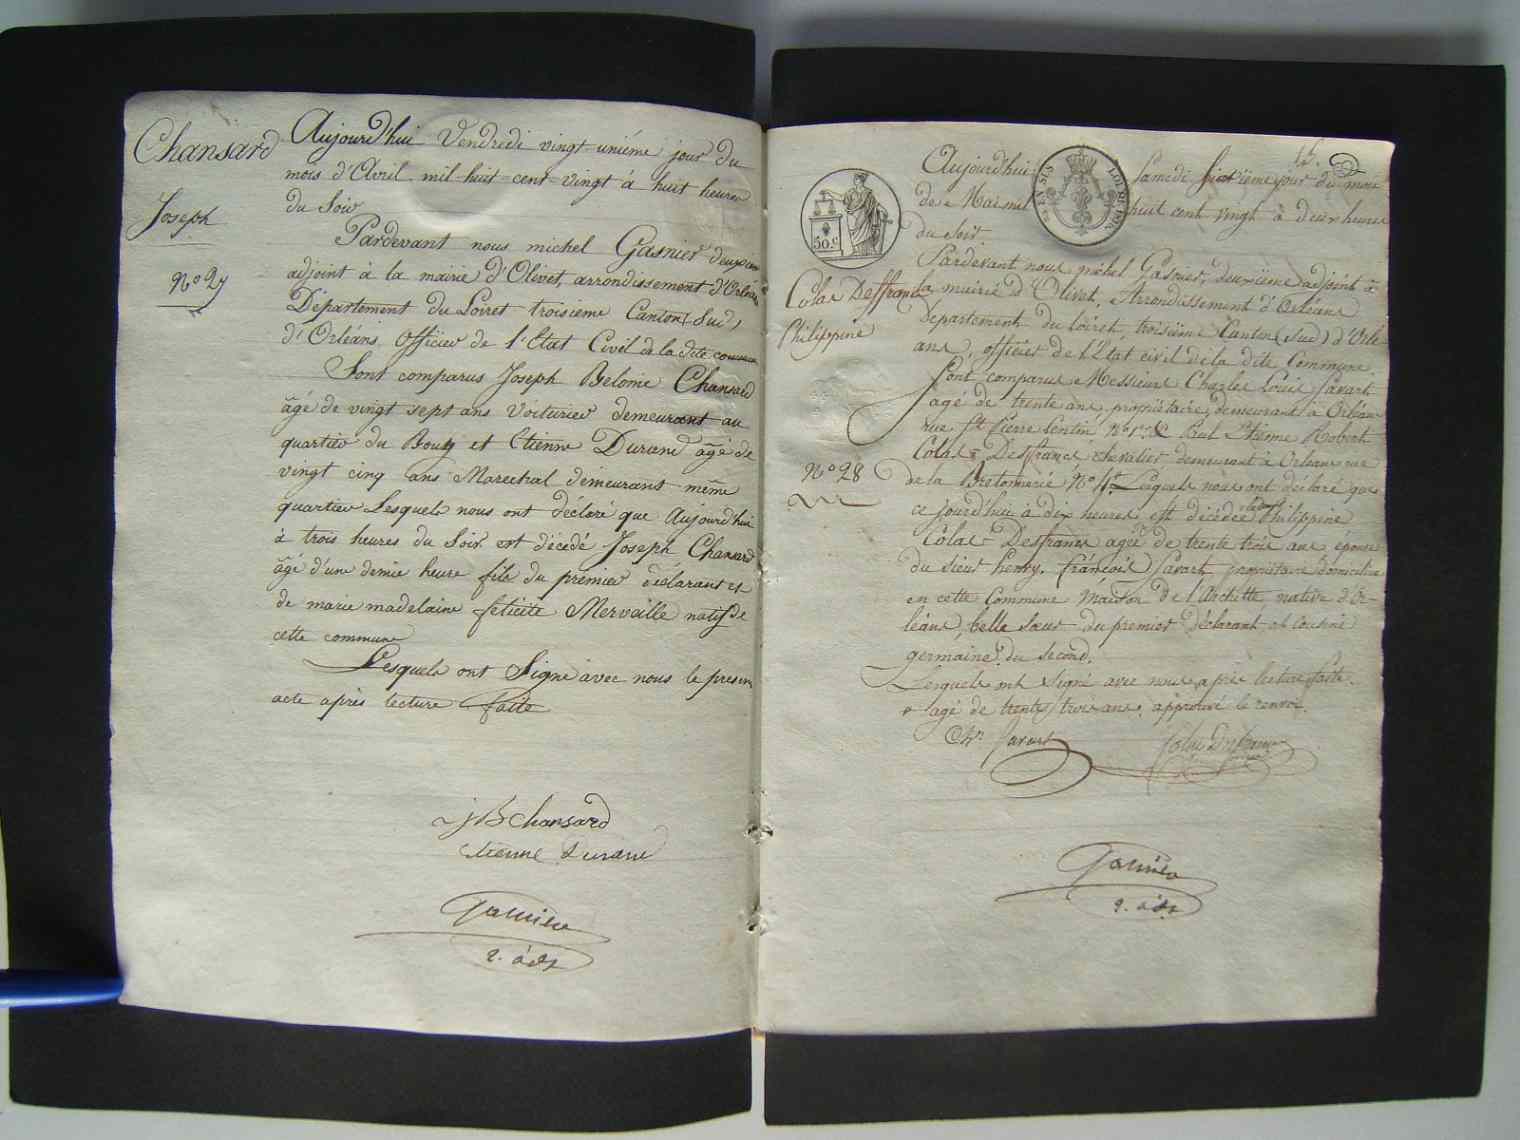 Chansard
Joseph
N° 27
Aujourd'hui Vendredi vingt-uniéme jour du
mois d'Avril mil-huit-cent-vingt à huit heures
du Soir
Pardevant nous michel Gasnier deuxieme
adjoint à la mairie d'Olivet, arrondissement d'Orléans
Département du Loiret troisieme Canton (Sud)
d'Orléans Officier de l'Etat Civil de la dite commune
Sont comparus Joseph Belonie Chansard
âgé de vingt sept ans Voiturier demeurant au
quartier du Bourg et Etienne Durand âgé de
vingt cinq ans Marechal demeurant même
quartier Lesquels nous ont déclaré que Aujourd'hui
à trois heures du Soir est décédé Joseph Chansard
âgé d'une demie heure fils du premier déclarant et
de marie madelaine felicité Mervaille natif de
cette commune
Lesquels ont Signé avec nous le present
acte après lecture faite
JB Chansard
Etienne Durand
Gasnier
2. adt
15.
50 c.
EN SUS
LOI DE 1816
Colas Desfrancs
Philippine
N° 28
Aujourd'hui Samedi sixième jour du mois
de Mai mil huit cent vingt à deux heures
du soir.
Pardevant nous michel Gasnier, deuxième adjoint à
la mairie d'Olivet, Arrondissement d'Orléans
département du loiret, troisième Canton (Sud) d'Orlé-
ans, officier de l'Etat civil de la dite Commune
Sont comparus Messieurs Charles Louis Javart
agé de trente ans, propriétaire, demeurant à Orléans
rue St Pierre lentin N° 1er & Paul Etienne Robert
Colas Desfrancs chevalier demeurant à Orléans rue
de la Bretonnerie N° Lesquels nous ont déclaré que
ce jourd'hui à dix heures est décédée Philippine
Colas Desfrancs agée de trente trois ans épouse
du sieur henry françois Javart propriétaire domicilié
en cette Commune Maison de l'Archette, native d'Or-
léans, belle sœur du premier déclarant et cousine
germaine du second.
Lesquels ont signé avec nous après lecture faite.
+ agé de trente trois ans. approuvé le renvoi.
Ch. Javart
Colas Desfrancs
Gasnier
2. adt